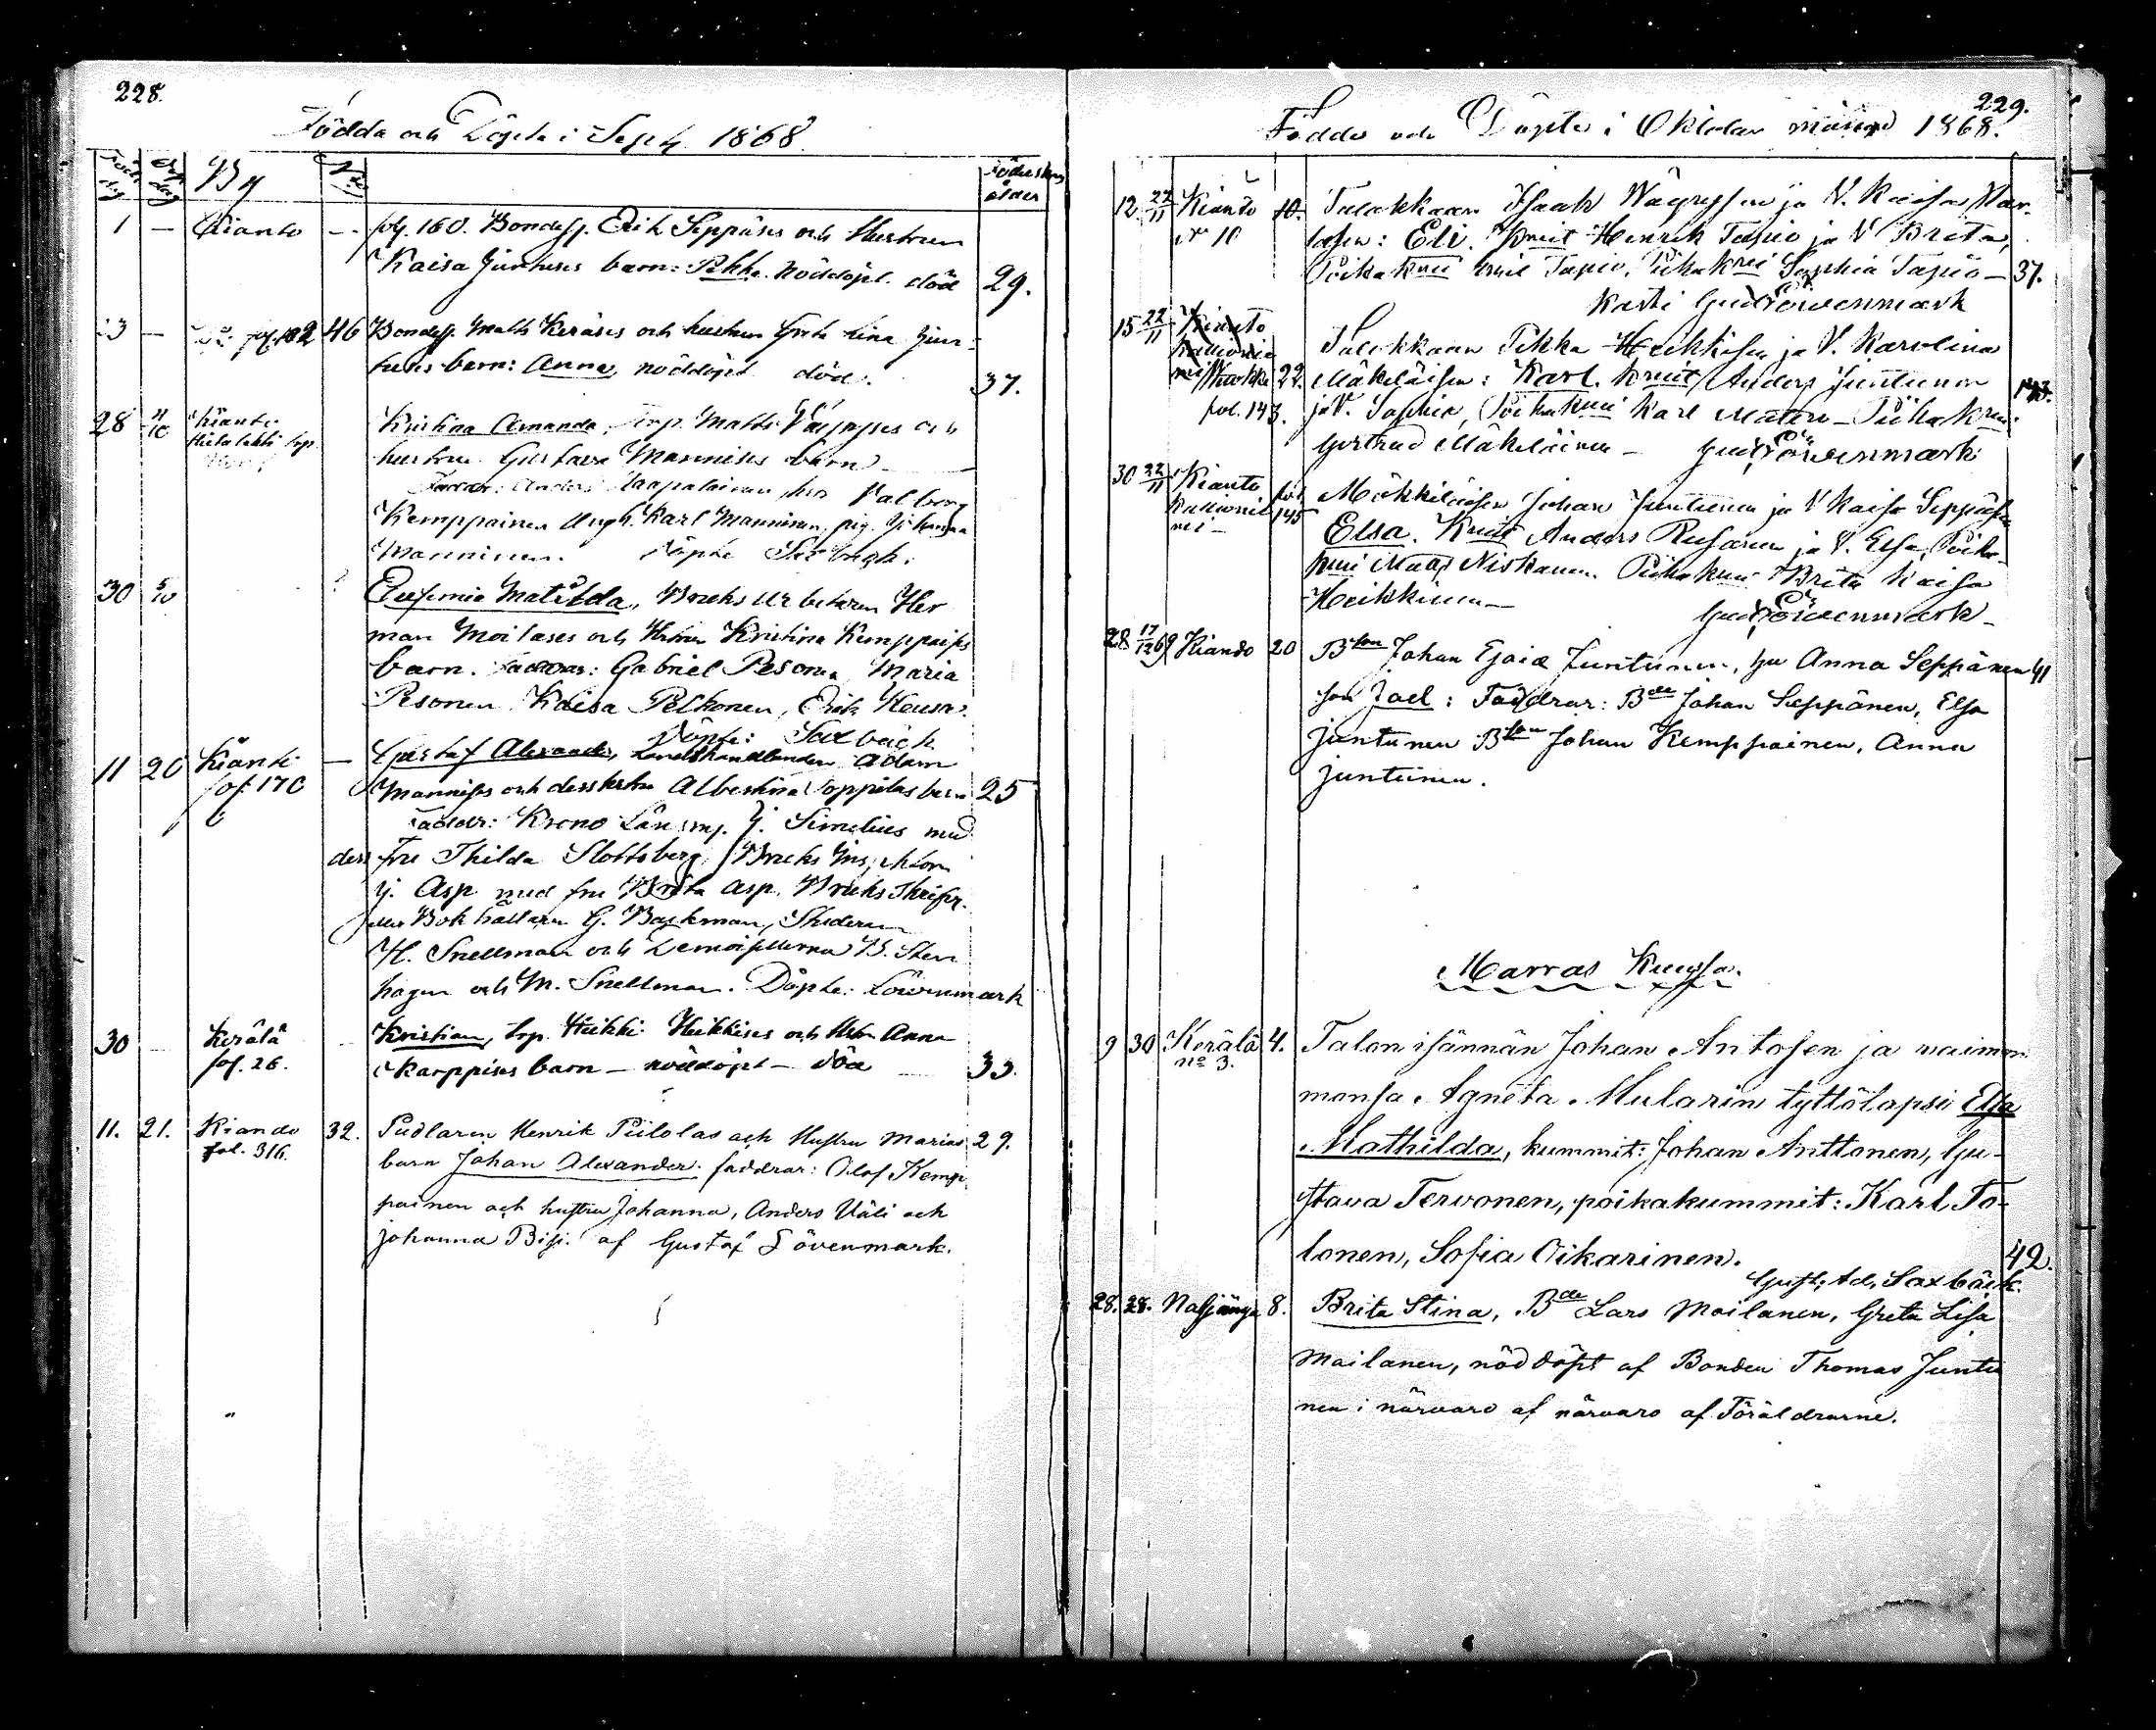 228.
Födda och Döpta i Sept. 1868.
Född dag Döp dag By No Föderskans ålder
1 — Kianto — fol. 160. Bondess. Erik Seppäses och Hustrun
Kaisa Juntuses barn: Pekka. Nöddöpt. död 29.
fol. 102 46 Bondess. Matts Keräses och hustrun Greta Lina Jun-
tuses barn: Anna, nöddöpt död. 37.
28 4/10 Kianto Kristina Amanda, Matts och
hustrun Gustava Mannises barn
Anders hos Valborg
Kemppainen Ungk. Karl Manninen, pig. Johanna
Manninen. Döpte Saxbäck.
30 5/10 Eufemia Matilda, Bruks arbetaren Her
man Moilases och Hustrun Kristina Kemppaises
barn. Faddrar: Gabriel Pesonen, Maria
Pesonen Kaisa Pelkonen, Erik
Döpte: Saxbäck
11 20 Kianto — Gustaf Alexander, Landthandlanden Adam
fol. 170 Mannises och dess hustru Albertina Soppelas barn 25
Faddr: Krono Länsm. J. Simelius med
dess fru Thilda Slottsberg, Bruks Inspektorn
J. Asp med fru Brita Asp. Bruks
Bokhållaren G. Backman, Studeran
H. Snellman och Demoisellerna B. Sten
hagen och M. Snellman. Döpte: Löwenmark
30 — Kerälä — Kristian, trp. Heikki Heikkises och Hstn Anna
fol. 26. Karppises barn — nöddöpt — död 33.
11. 21. Kiando 32. Pudlaren Henrik Piilolas och Hustru Marias 29.
fol. 316. barn Johan Alexander. faddrar: Olof Kemp
painen och hustru Johanna, Anders Väli och
Johanna Bisi. af Gustaf Lövenmark.
229.
Födde och Döpte i Oktober månad 1868.
12 22/11 Kianto 10. Talokkaan Isaak Wäyrysen ja V. Kaisa Kar-
No 10 Eli. Kmit Henrik Tapio ja V Brita,
Poikakmi Tapio, Piikakmi Sophia Tapio — 37.
Kasti Gust Löwenmark
15 22/11 Kianto Talokkaan Pekka Heikkisen ja V. Karolina
22. Mäkeläisen: Karl. Kmit Anders Juntunen
fol. 143. ja V. Sophia, Poikakmi Karl Määttä — Piikakmi
Gertrud Mäkeläinen — Gust Löwenmark
30 22/11 Kianto fol 145 Mökkiläisen Johan Juntunen ja V Kaisa Seppäsen
Elsa. Kmit Anders Rusanen ja V. Elsa, Poika-
kmi Matts Niskanen. Piikakmi Brita Kaisa
Heikkinen — Gust Löwenmark —
28 17/12 69 Kiando 20 Bson Johan Esaia Juntunen, hu Anna Seppänen 41
son Joel: Faddrar: Bde Johan Seppänen, Elsa
Juntunen Bson Johan Kemppainen, Anna
Juntunen.
Marras Kuussa.
9 30 Kerälä 4. Talon isännän Johan Antosen ja vaimon
No 3. monsa Agneta Mularin tyttölapsi Elsa
Mathilda, kummit: Johan Anttonen, Gu-
stava Tervonen, poikakummit: Karl To-
lonen, Sofia Oikarinen. 42.
Gust. Ad. Saxbäck.
28. 28. Naljänga 8. Brita Stina, Bde Lars Moilanen, Greta Lisa
Moilanen, nöddöpt af Bonden Thomas Juntu
nen i närvaro af närvaro af Föräldrarne.